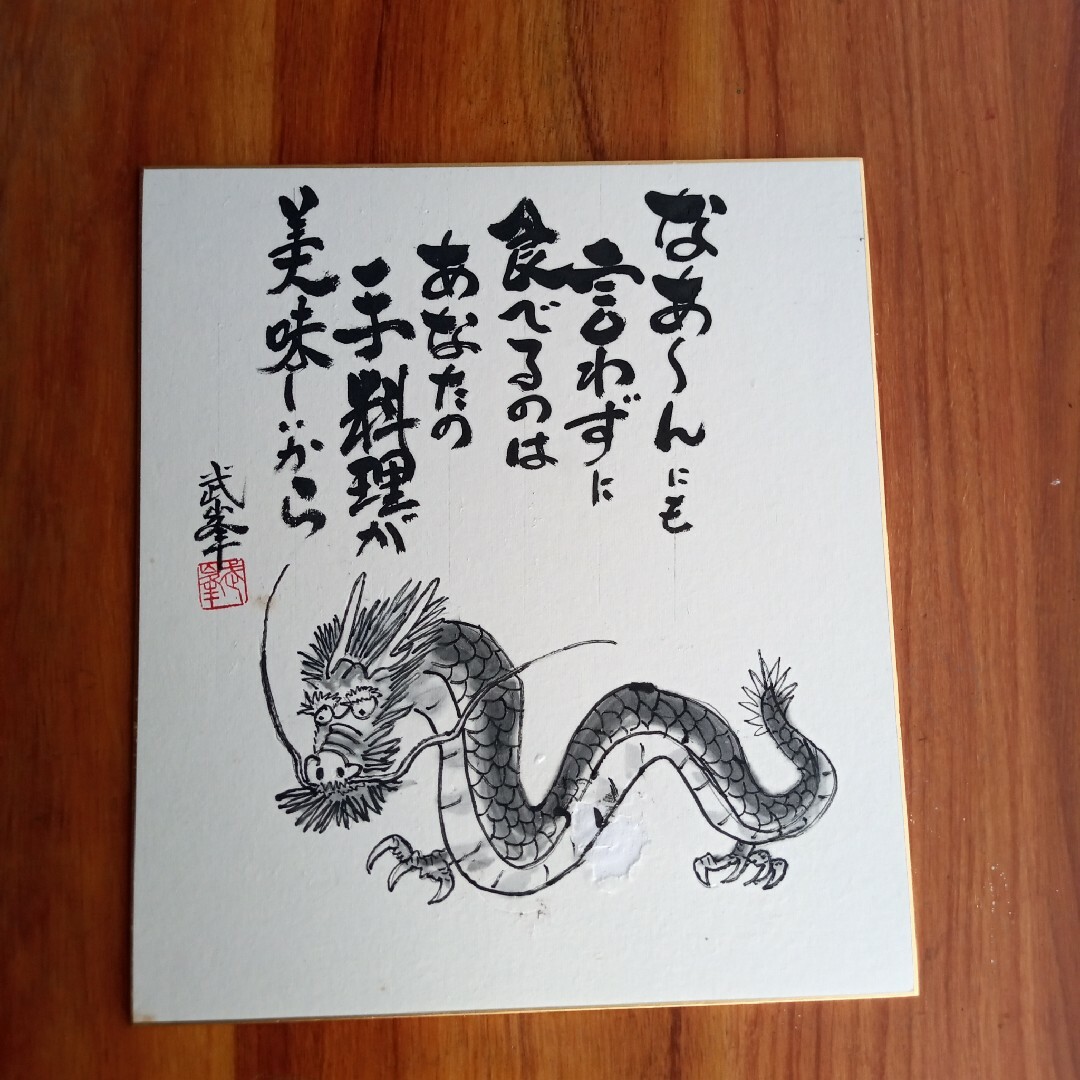 なあ〜んにも
言わずに
食べるのは
あなたの
手料理が
美味しいから
武峯
武峯